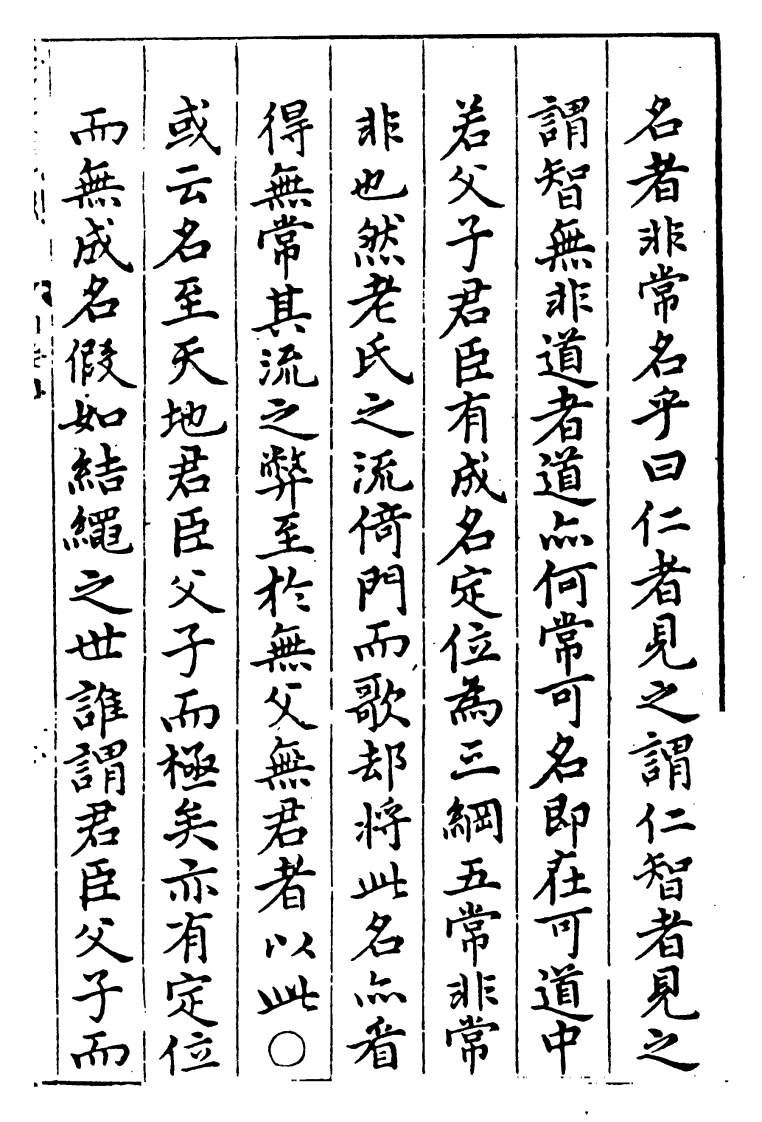 名者非常名乎曰仁者見之謂仁智者見之
謂智無非道者道亦何常可名即在可道中
若父子君臣有成名定位為三綱五常非常
非也然老氏之流倚門而歌却将此名亦看
得無常其流之弊至於無父無君者以此○
或云名至天地君臣父子而極矣亦有定位
而無成名假如結繩之世誰謂君臣父子而